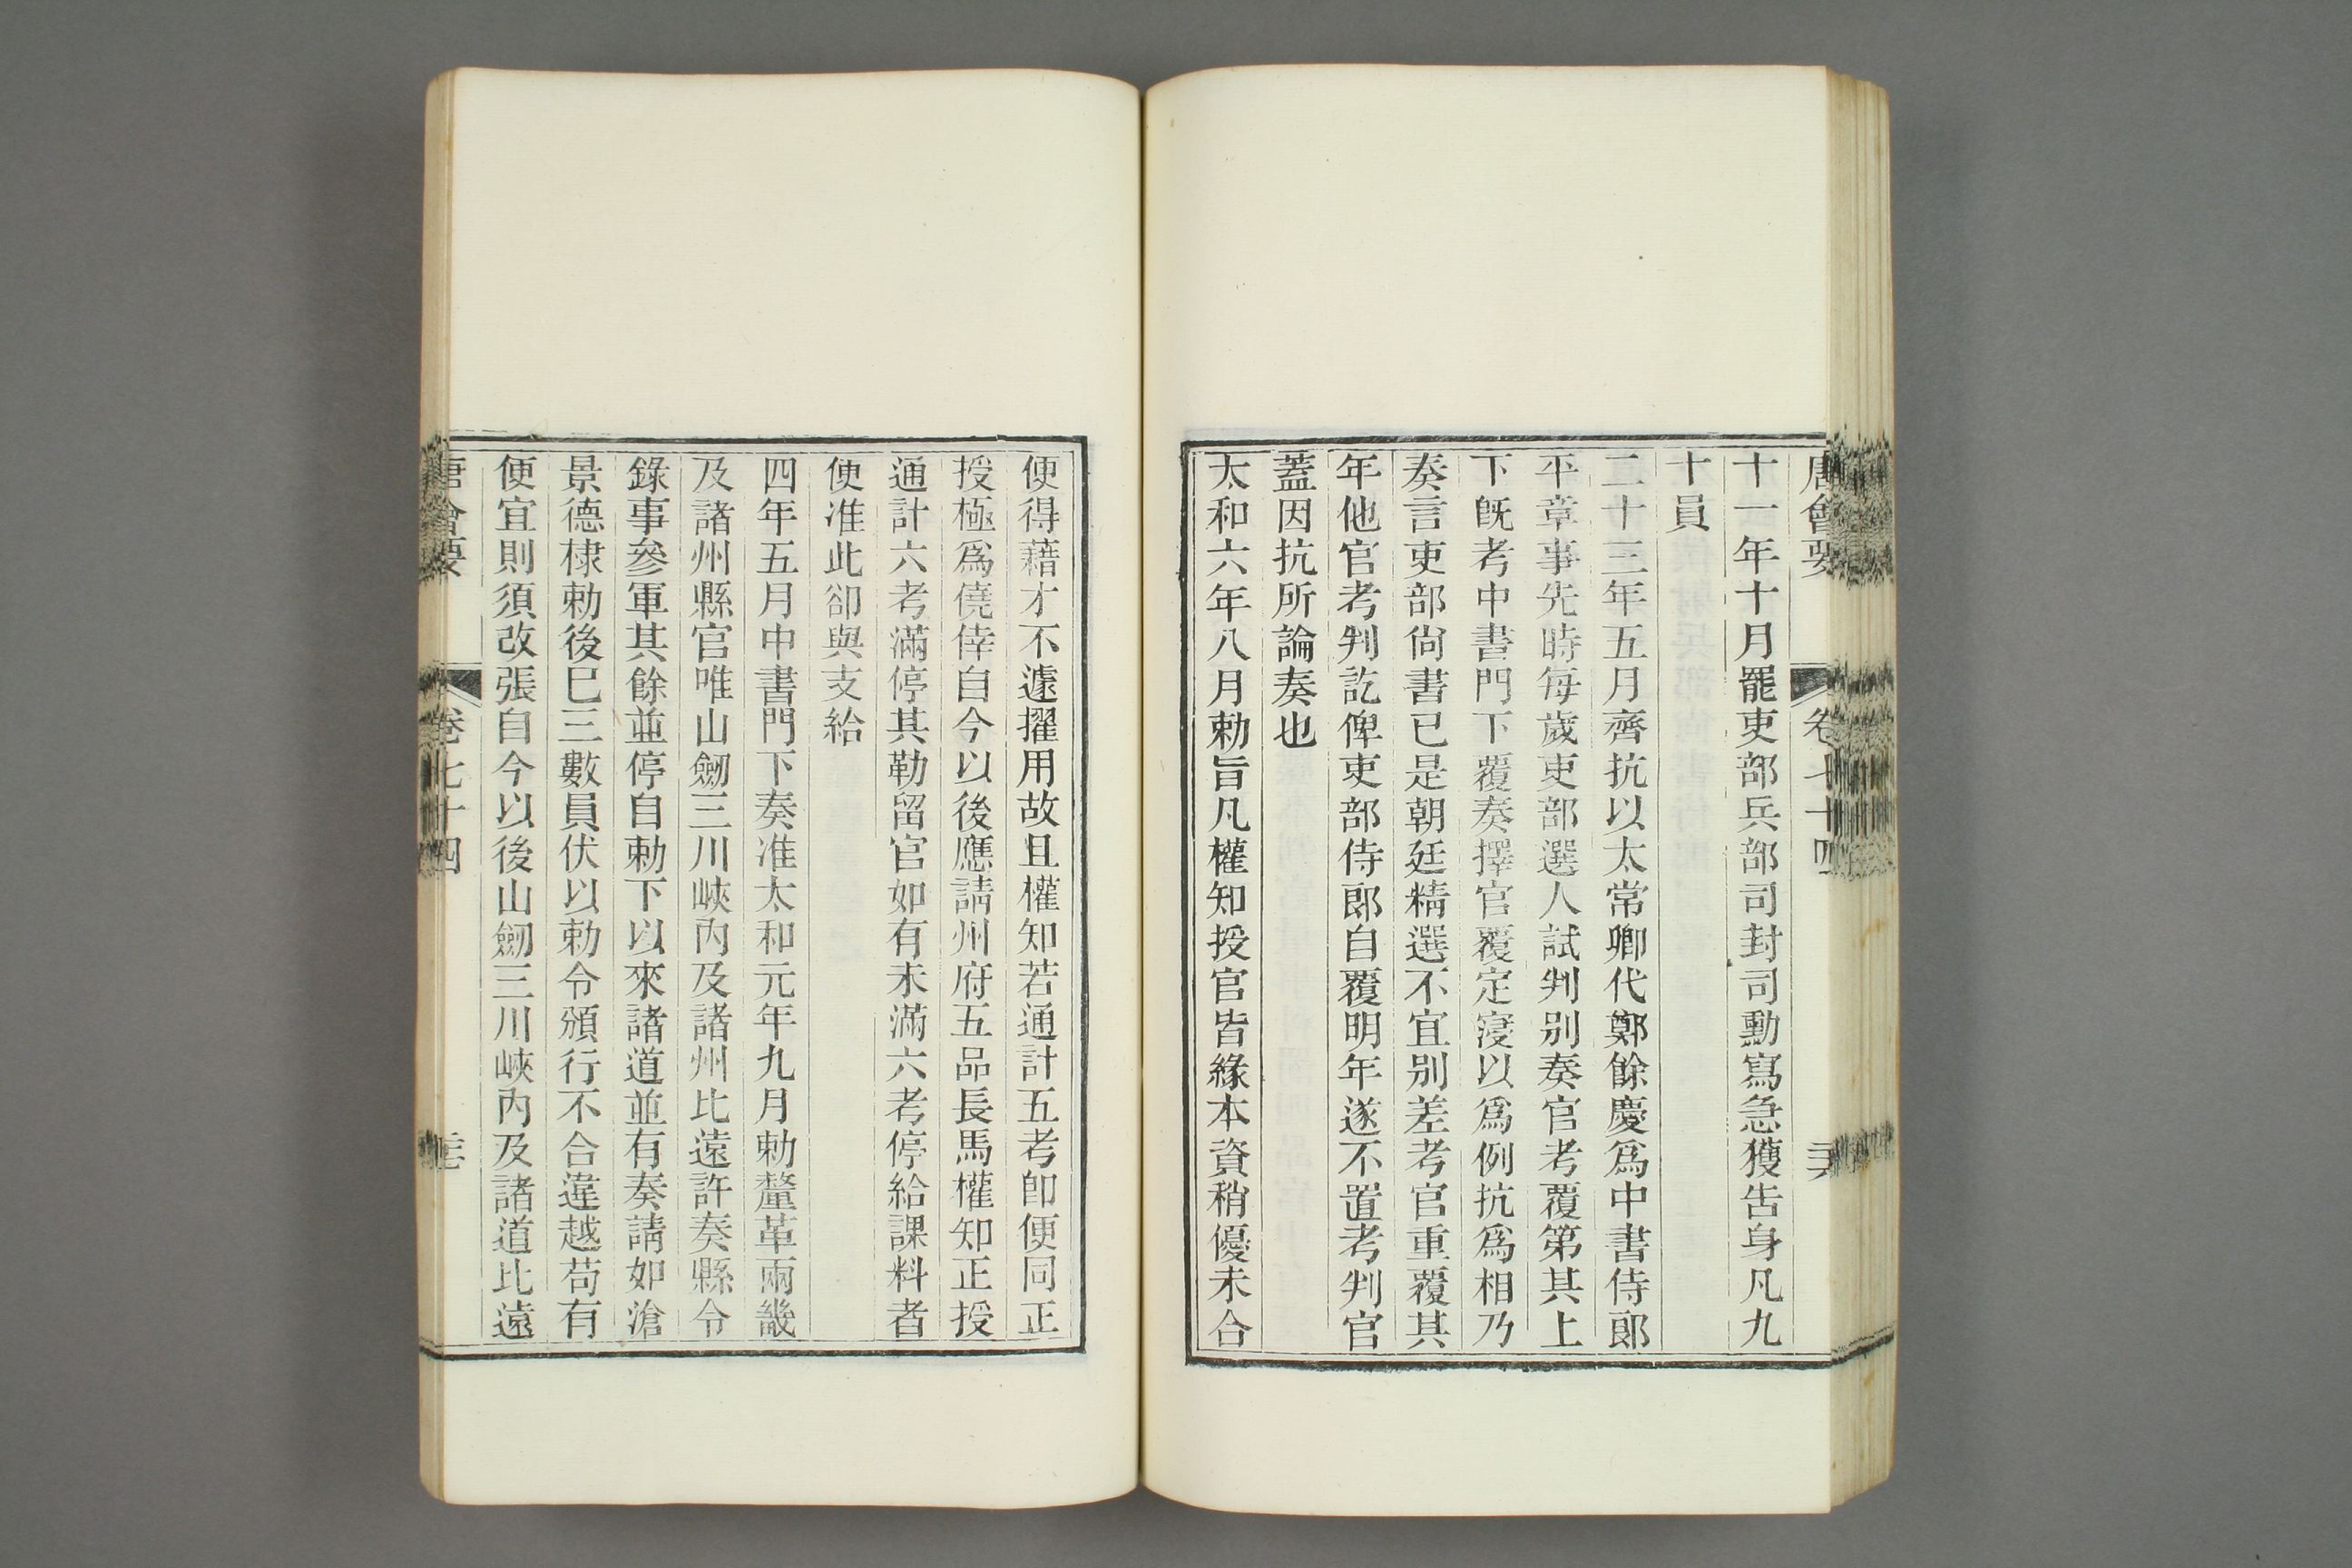 唐會要 卷七十四 三六
十一年十月罷吏部兵部司封司勳寫急獲告身凡九
十員
二十三年五月齊抗以太常卿代鄭餘慶爲中書侍郎
平章事先時每歲吏部選人試判别奏官考覆第其上
下旣考中書門下覆奏擇官覆定寖以爲例抗爲相乃
奏言吏部尙書已是朝廷精選不宜别差考官重覆其
年他官考判訖俾吏部侍郎自覆明年遂不置考判官
蓋因抗所論奏也
太和六年八月勅旨凡權知授官皆緣本資稍優未合
便得藉才不遽擢用故且權知若通計五考卽便同正
授極爲僥倖自今以後應請州府五品長馬權知正授
通計六考滿停其勒留官如有未滿六考停給課料者
便准此卻與支給
四年五月中書門下奏准太和元年九月勅釐革兩畿
及諸州縣官唯山劒三川峽內及諸州比遠許奏縣令
錄事參軍其餘並停自勅下以來諸道並有奏請如滄
景德棣勅後巳三數員伏以勅令頒行不合違越苟有
便宜則須改張自今以後山劒三川峽內及諸道比遠
唐會要 卷七十四